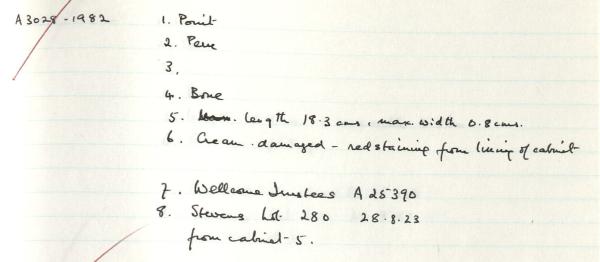 A3028-1982 1. Point
2. Peru
3.
4. Bone
5. length 18.3 cms, max. width 0.8 cms.
6. Cream. damaged - red staining from lining of cabinet
7. Wellcome Trustees A 25390
8. Stevens Lot 280 28.8.23
from cabinet 5.